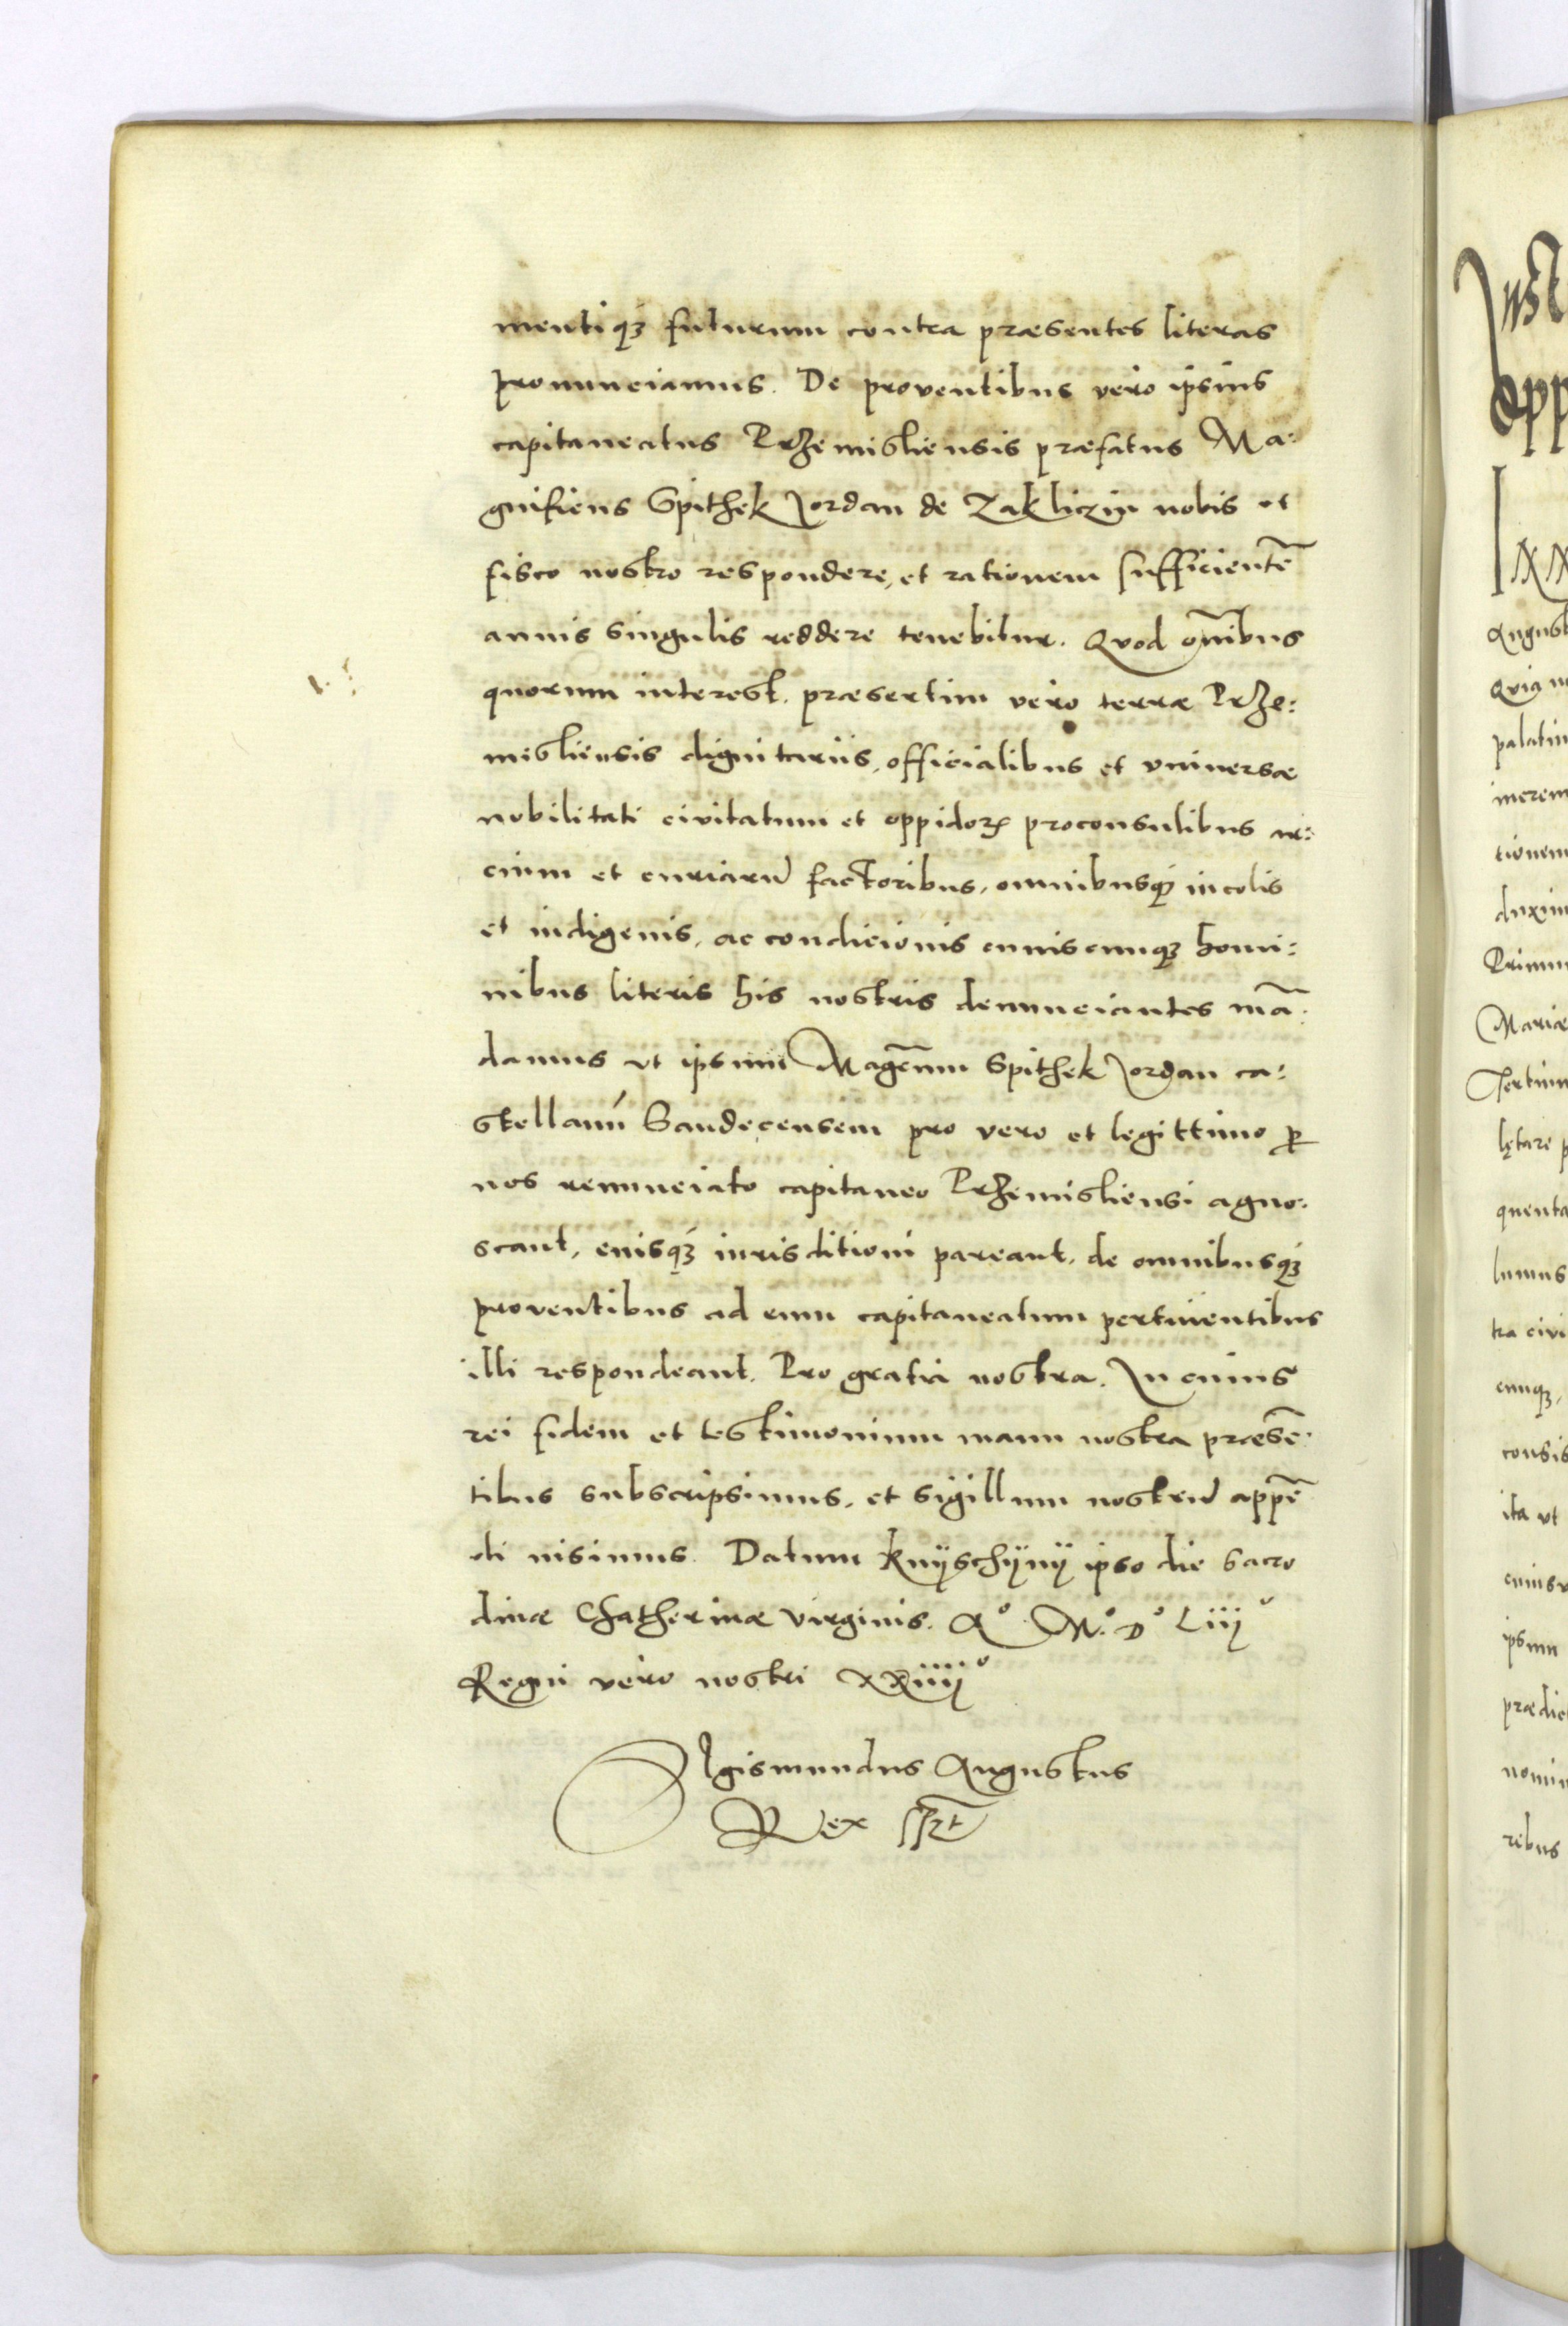 mentiqꝫ futurum contra præsentes literas
pronunciamus. De proventibus vero ipsius
capitaneatus Przemisliensis præfatus Ma:
gnificus Spithek Jordan de Zakliczin nobis et
fisco nostro respondere, et rationem sufficientē
annis singulis reddere tenebitur. Quod om̄ibus
quorum interest. præsertim vero terræ Prze:
misliensis dignitariis, officialibus et universæ
nobilitati civitatum et oppidorꝝ proconsulibus ar:
cium et curiarū factoribus, omnibusqꝫ incolis
et indigenis, ac condicionis cuiuscumqꝫ homi:
nibus literis his nostris denunciantes mā:
damus ut ipsum Magcūm Spithek Jordan ca:
stellanū Sandecensem pro vero et legittimo ꝑ
nos renunciato capitaneo Przemisliensi agno:
scant, eiusqꝫ iurisditioni pareant. de omnibusqꝫ
proventibus ad eum capitaneatum pertinentibus
illi respondeant. Pro gratia nostra. In cuius
rei fidem et testimonium manu nostra præsē:
tibus subscripsimus, et sigillum nostrū appē
di iusimus. Datum Knÿschÿnÿ ipso die sacro
divæ Chatherinæ virginis. Aº. M.º Dº Liijº
Regni vero nostri xxiiijº
Sigismundus Augustus
Rex sst
Inst
opp
August
Quia n
palatin
inerem
tionem
duxim
Primu
Mariæ
Tertium
lętare p
quenta
lumus
tra civi
cunqꝫ,
consis
ita ut
cuiusv
ipsum
prædic
nomin
ribus